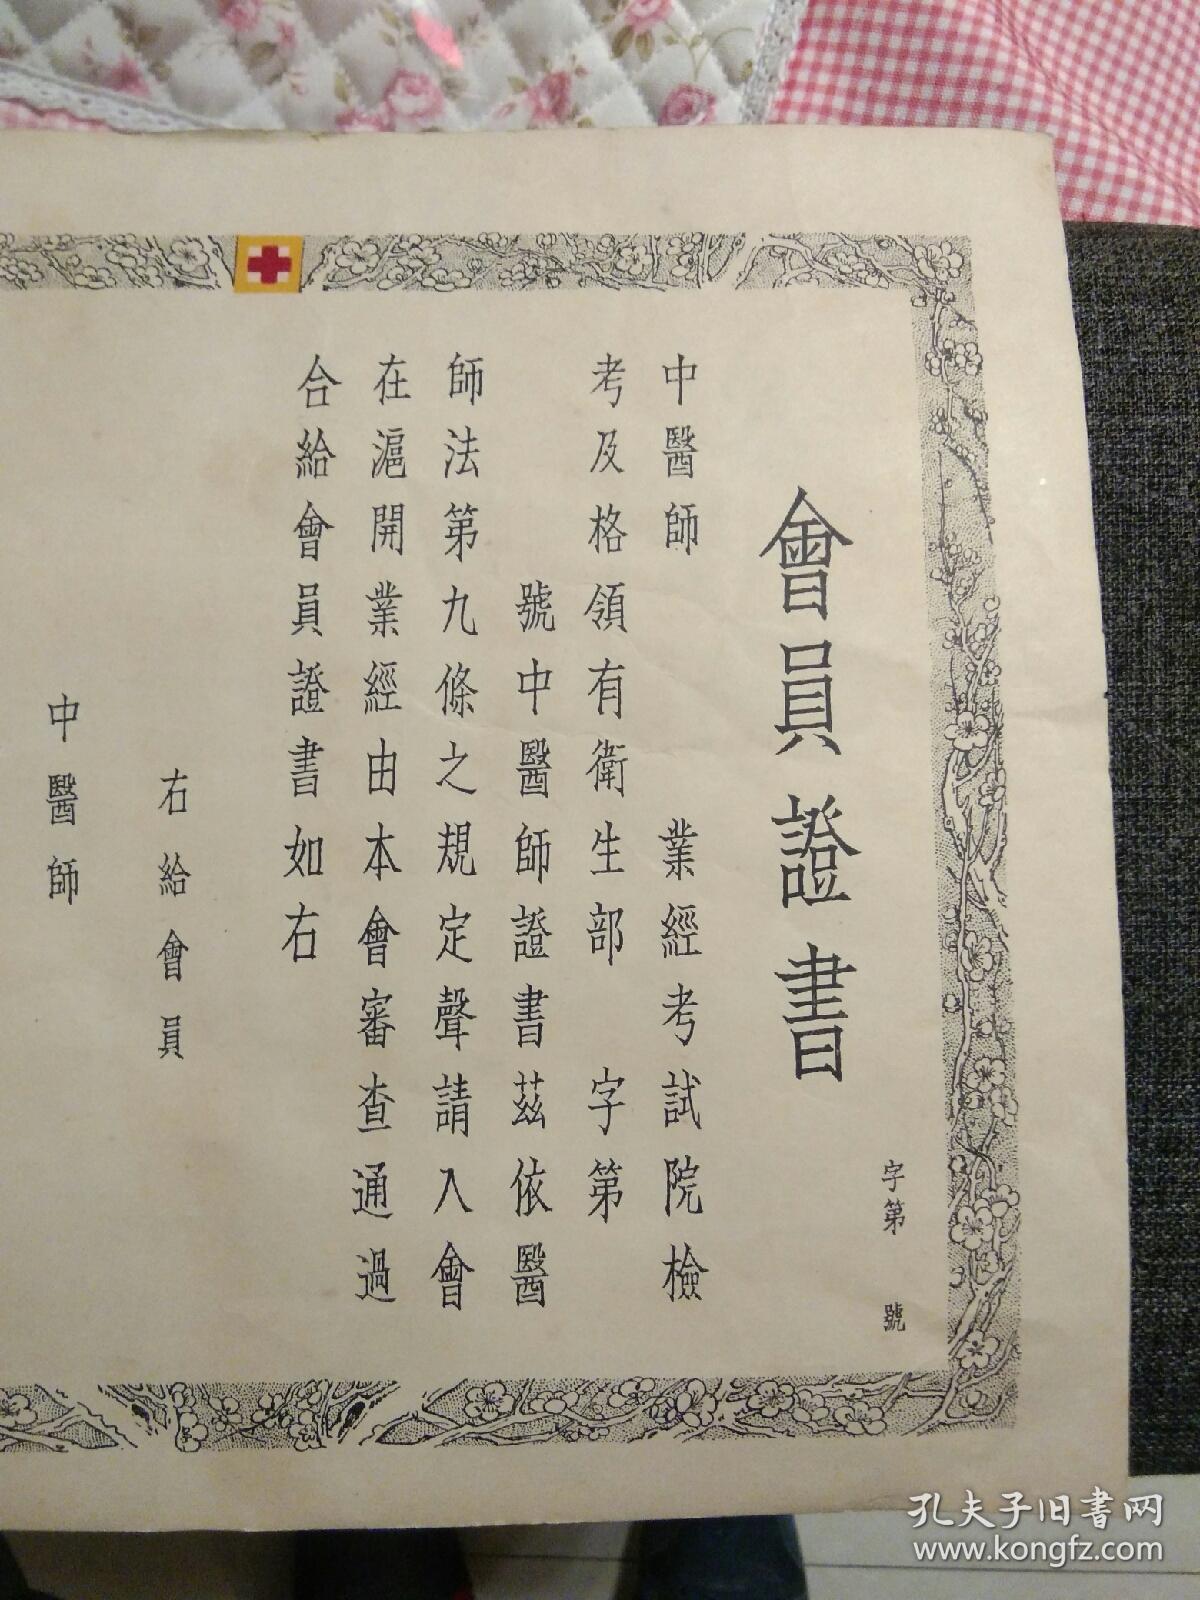 字第　號
會員證書
中醫師　業經考試院檢
考及格領有衛生部　字第
號中醫師證書茲依醫
師法第九條之規定聲請入會
在滬開業經由本會審查通過
合給會員證書如右
右給會員
中醫師
孔夫子旧书网
www.kongfz.com